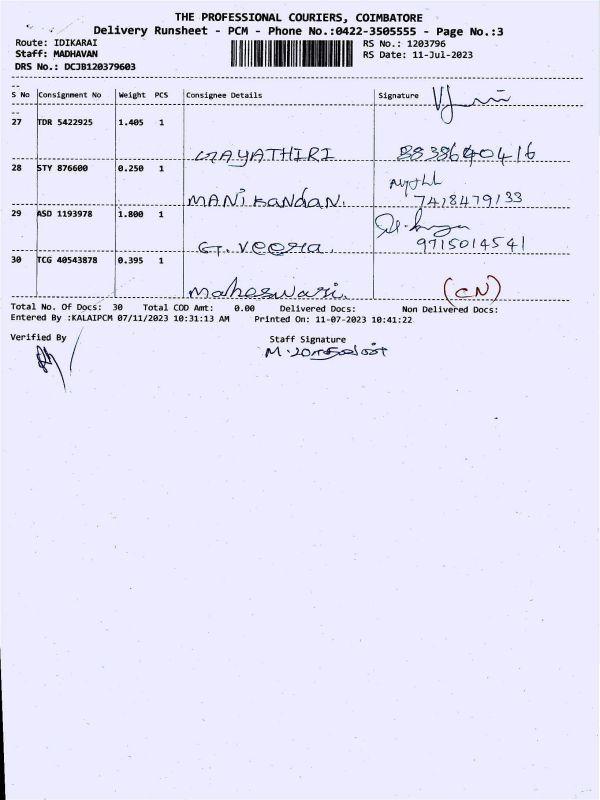 THE PROFESSIONAL COURIERS, COIMBATORE
Delivery Runsheet - PCM - Phone No.:0422-3505555 - Page No.:3
Route: IDIKARAI RS No.: 1203796
Staff: MADHAVAN RS Date: 11-Jul-2023
DRS No.: DCJB120379603
S No Consignment No Weight PCS Consignee Details Signature
27 TDR 5422925 1.405 1
GAYATHIRI
28 STY 876600 0.250 1
MANiKANDAN. 7418479133
29 ASD 1193978 1.800 1
G.Veera. 9715014541
30 TCG 40543878 0.395 1
Maheswari. (CN)
Total No. Of Docs: 30 Total COD Amt: 0.00 Delivered Docs: Non Delivered Docs:
Entered By :KALAIPCM 07/11/2023 10:31:13 AM Printed On: 11-07-2023 10:41:22
Verified By Staff Signature